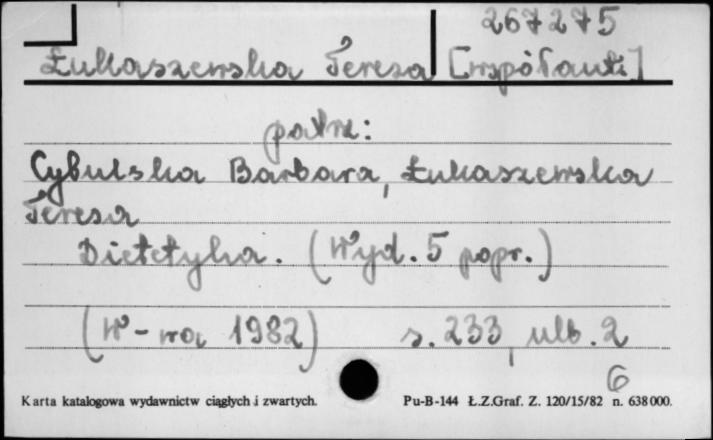 267275
Łukaszewska Teresa [współaut.]
patrz:
Cybulska Barbara, Łukaszewska
Teresa
Dietetyka. (Wyd. 5 popr.)
(W-wa 1982) s. 233, ulb. 2
6
Karta katalogowa wydawnictw ciągłych i zwartych. Pu-B-144 Ł.Z.Graf. Z. 120/15/82 n. 638000.